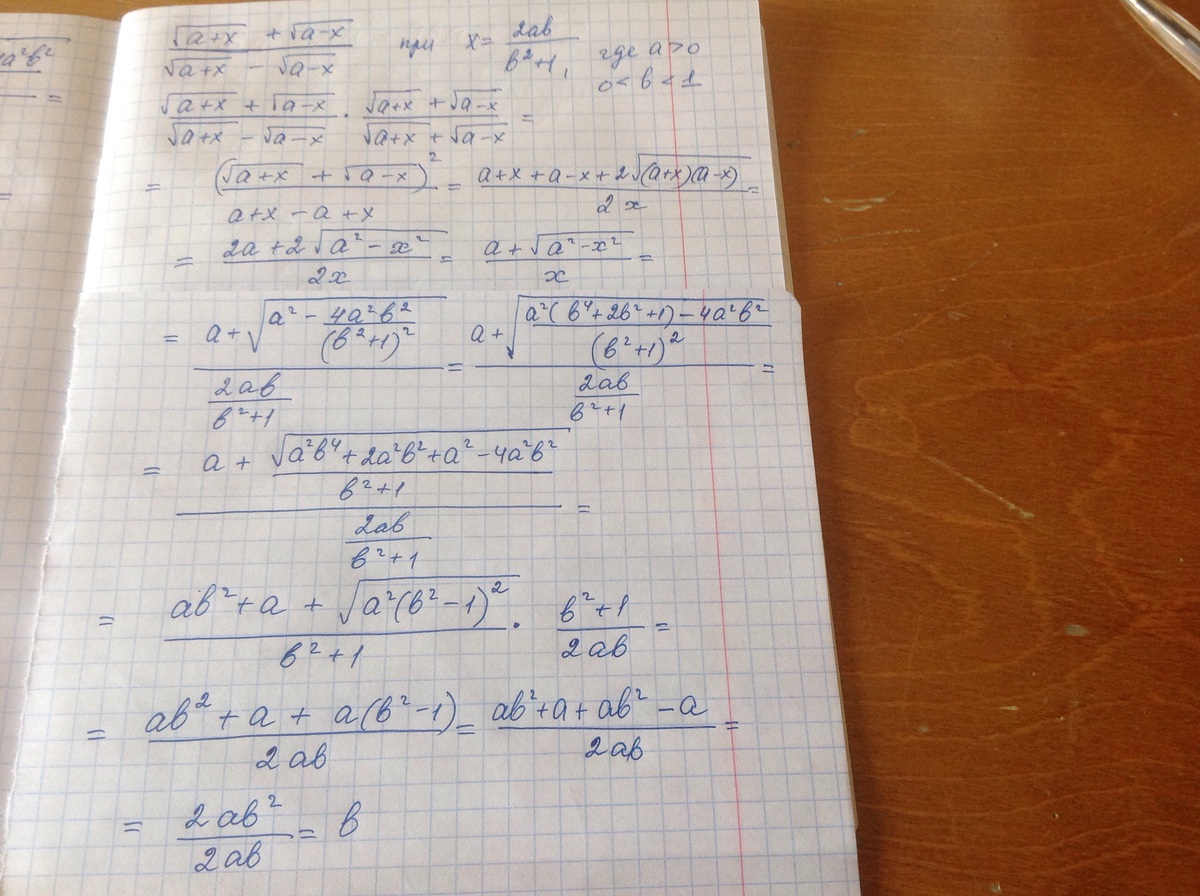 4a²b²
=
=
(√(a+x) + √(a-x))/(√(a+x) - √(a-x)) при x = 2ab/(b²+1), где a > 0
0 < b < 1
(√(a+x) + √(a-x))/(√(a+x) - √(a-x)) · (√(a+x) + √(a-x))/(√(a+x) + √(a-x)) =
= (√(a+x) + √(a-x))²/(a+x-a+x) = (a+x+a-x+2√((a+x)(a-x)))/(2x) =
= (2a+2√(a²-x²))/(2x) = (a+√(a²-x²))/x =
= (a+√(a² - 4a²b²/(b²+1)²))/(2ab/(b²+1)) = (a+√((a²(b⁴+2b²+1)-4a²b²)/(b²+1)²))/(2ab/(b²+1)) =
= (a + √(a²b⁴+2a²b²+a²-4a²b²)/(b²+1))/(2ab/(b²+1)) =
= (ab²+a + √(a²(b²-1)²))/(b²+1) · (b²+1)/(2ab) =
= (ab²+a + a(b²-1))/(2ab) = (ab²+a+ab²-a)/(2ab) =
= 2ab²/(2ab) = b